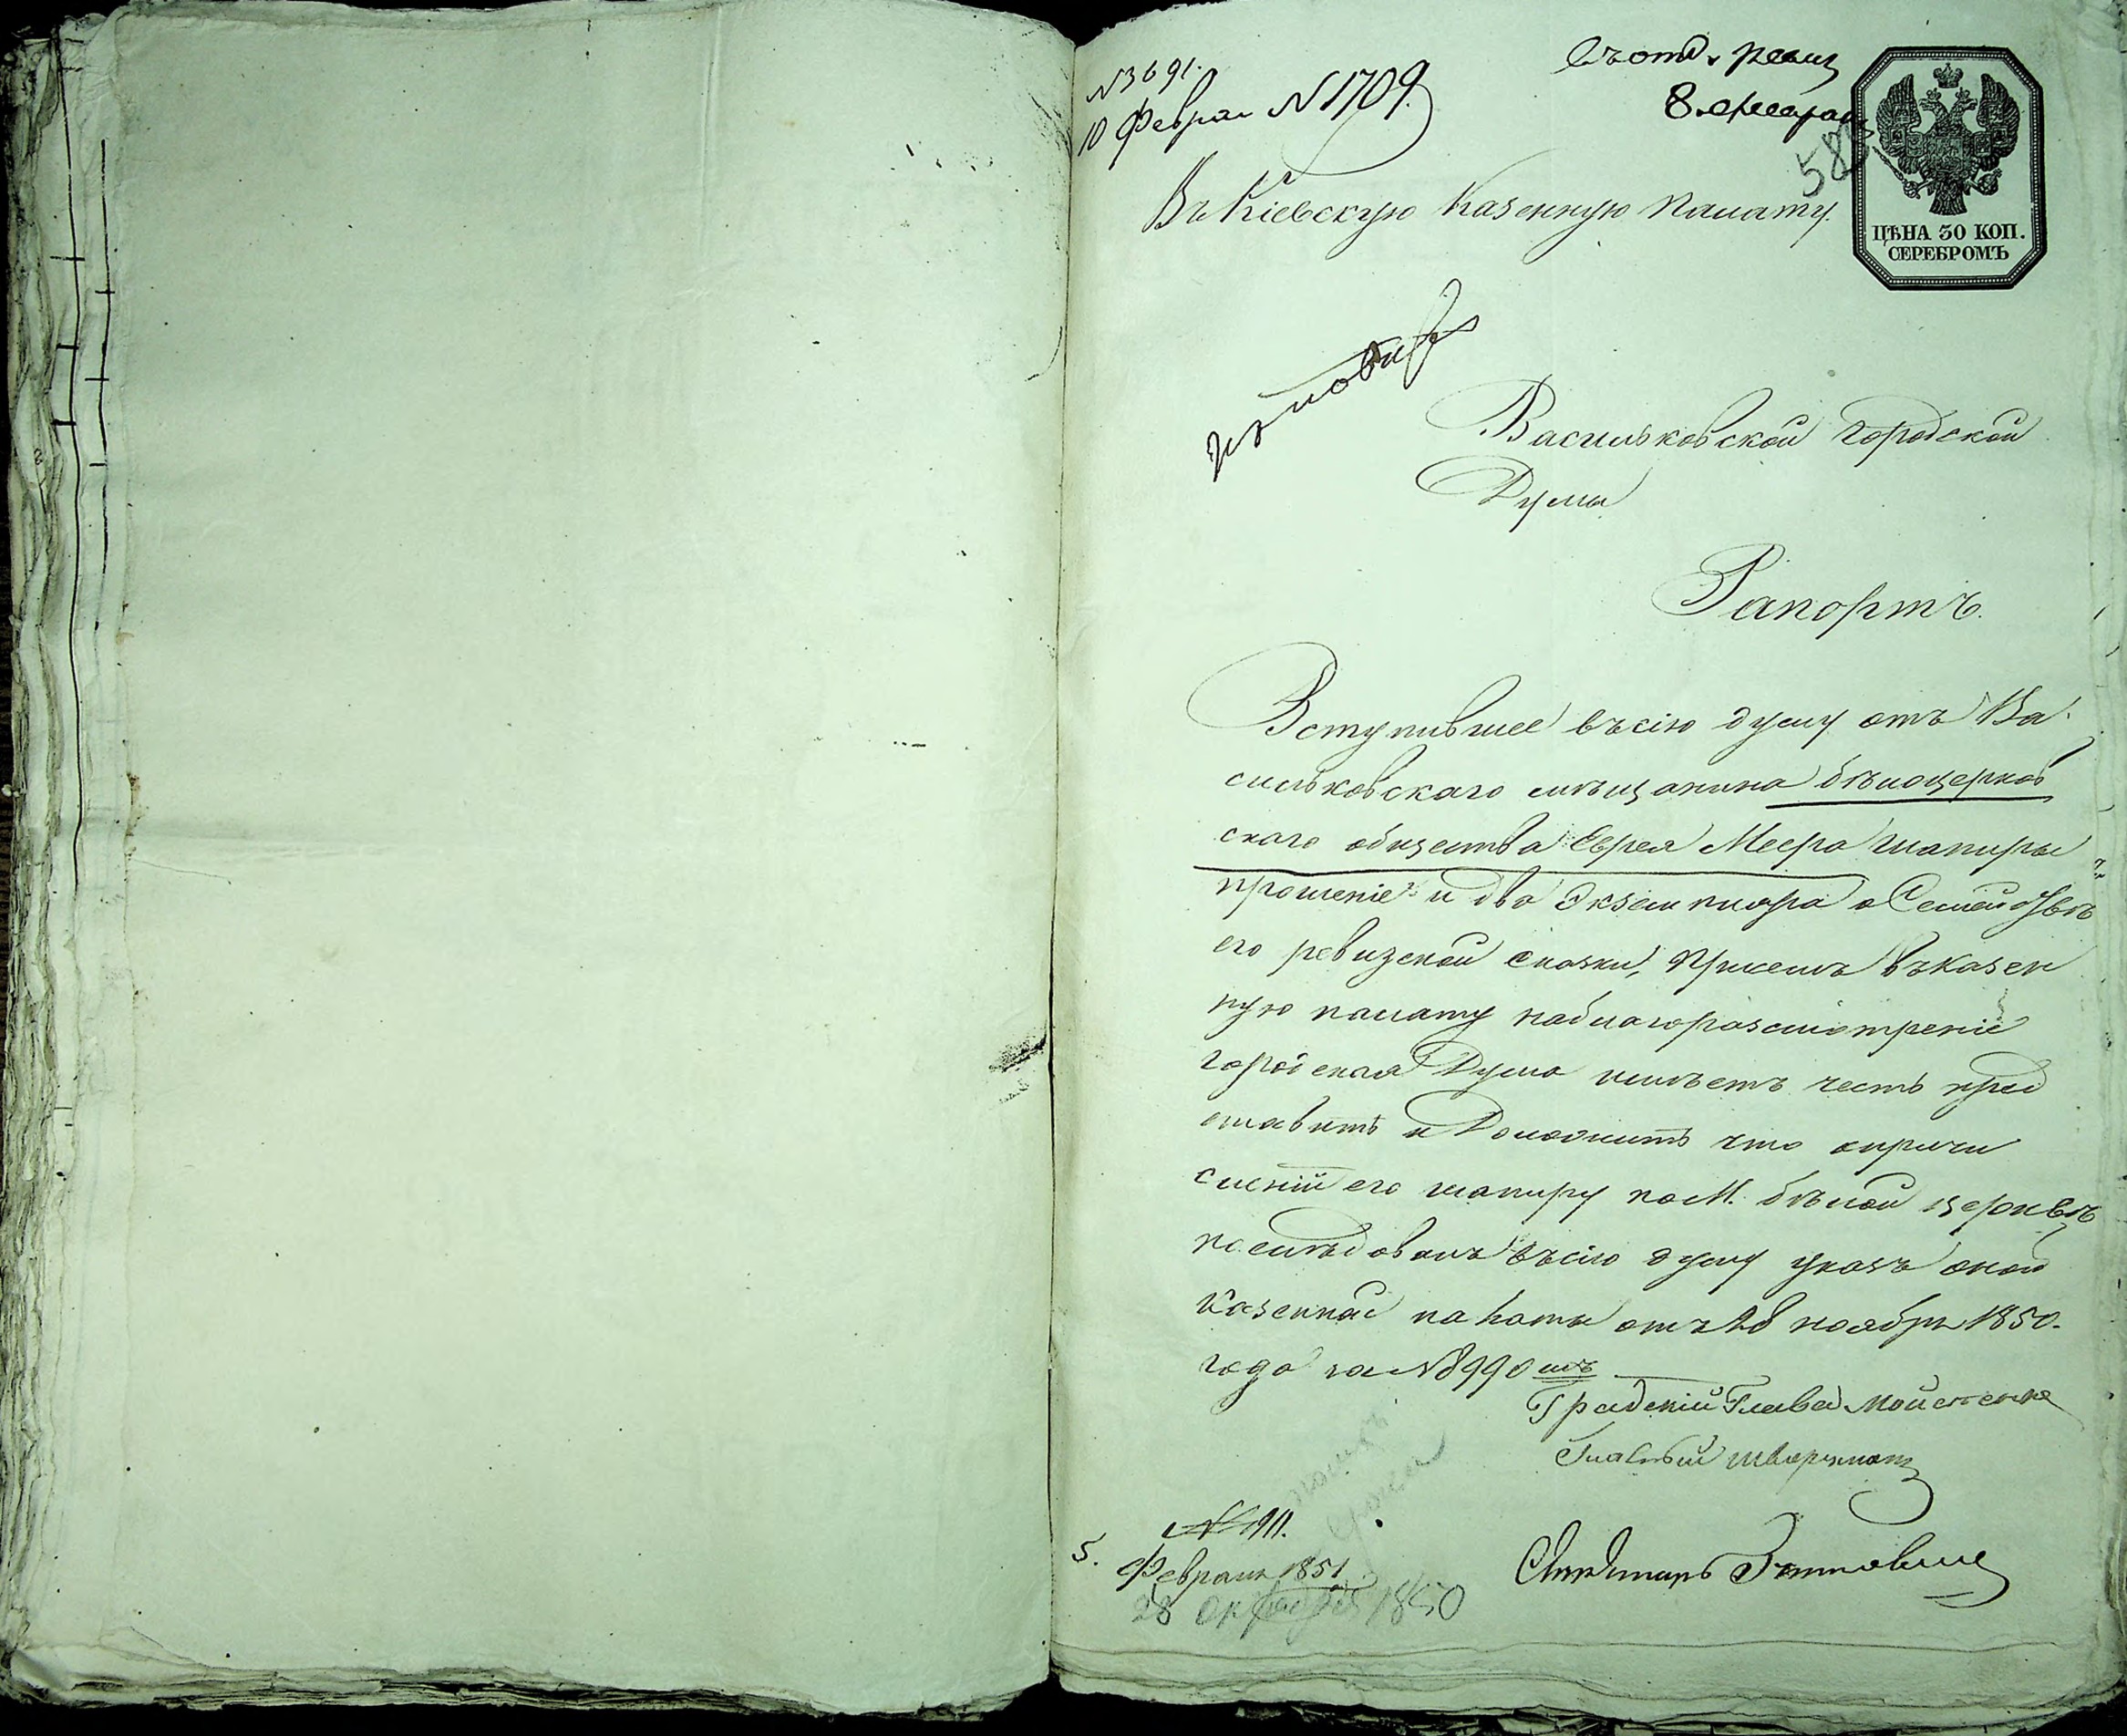 N 3691.
10 Феврал N 1709.
Въ отд. ревиз
8 феврал
58
Въ Кіевскую Казенную Палату.
ЦѢНА 30 КОП.
СЕРЕБРОМЪ
Васильковской городской
Думы
Рапортъ.
Вступившее въ сію думу отъ Ва
сильковскаго мѣщанина бѣлоцерков
скаго общества Еврея Меера Шапиры
прошеніе и два Экземпляра о Семействѣ
его ревизской сказки, При семъ въ казен
ную палату на благоразсмотреніе
городская Дума имѣетъ честь пред
ставить и Доложить что о причи
сленіи его шапиру по М. бѣлой церквѣ
последовалъ въ сію думу указъ оной
казенной палаты отъ 28 ноября 1850.
года за N 8990 мъ
Градскій Глава
Гласный
N 191.
5. Февраля 1851
28 октября 1850
Секретарь